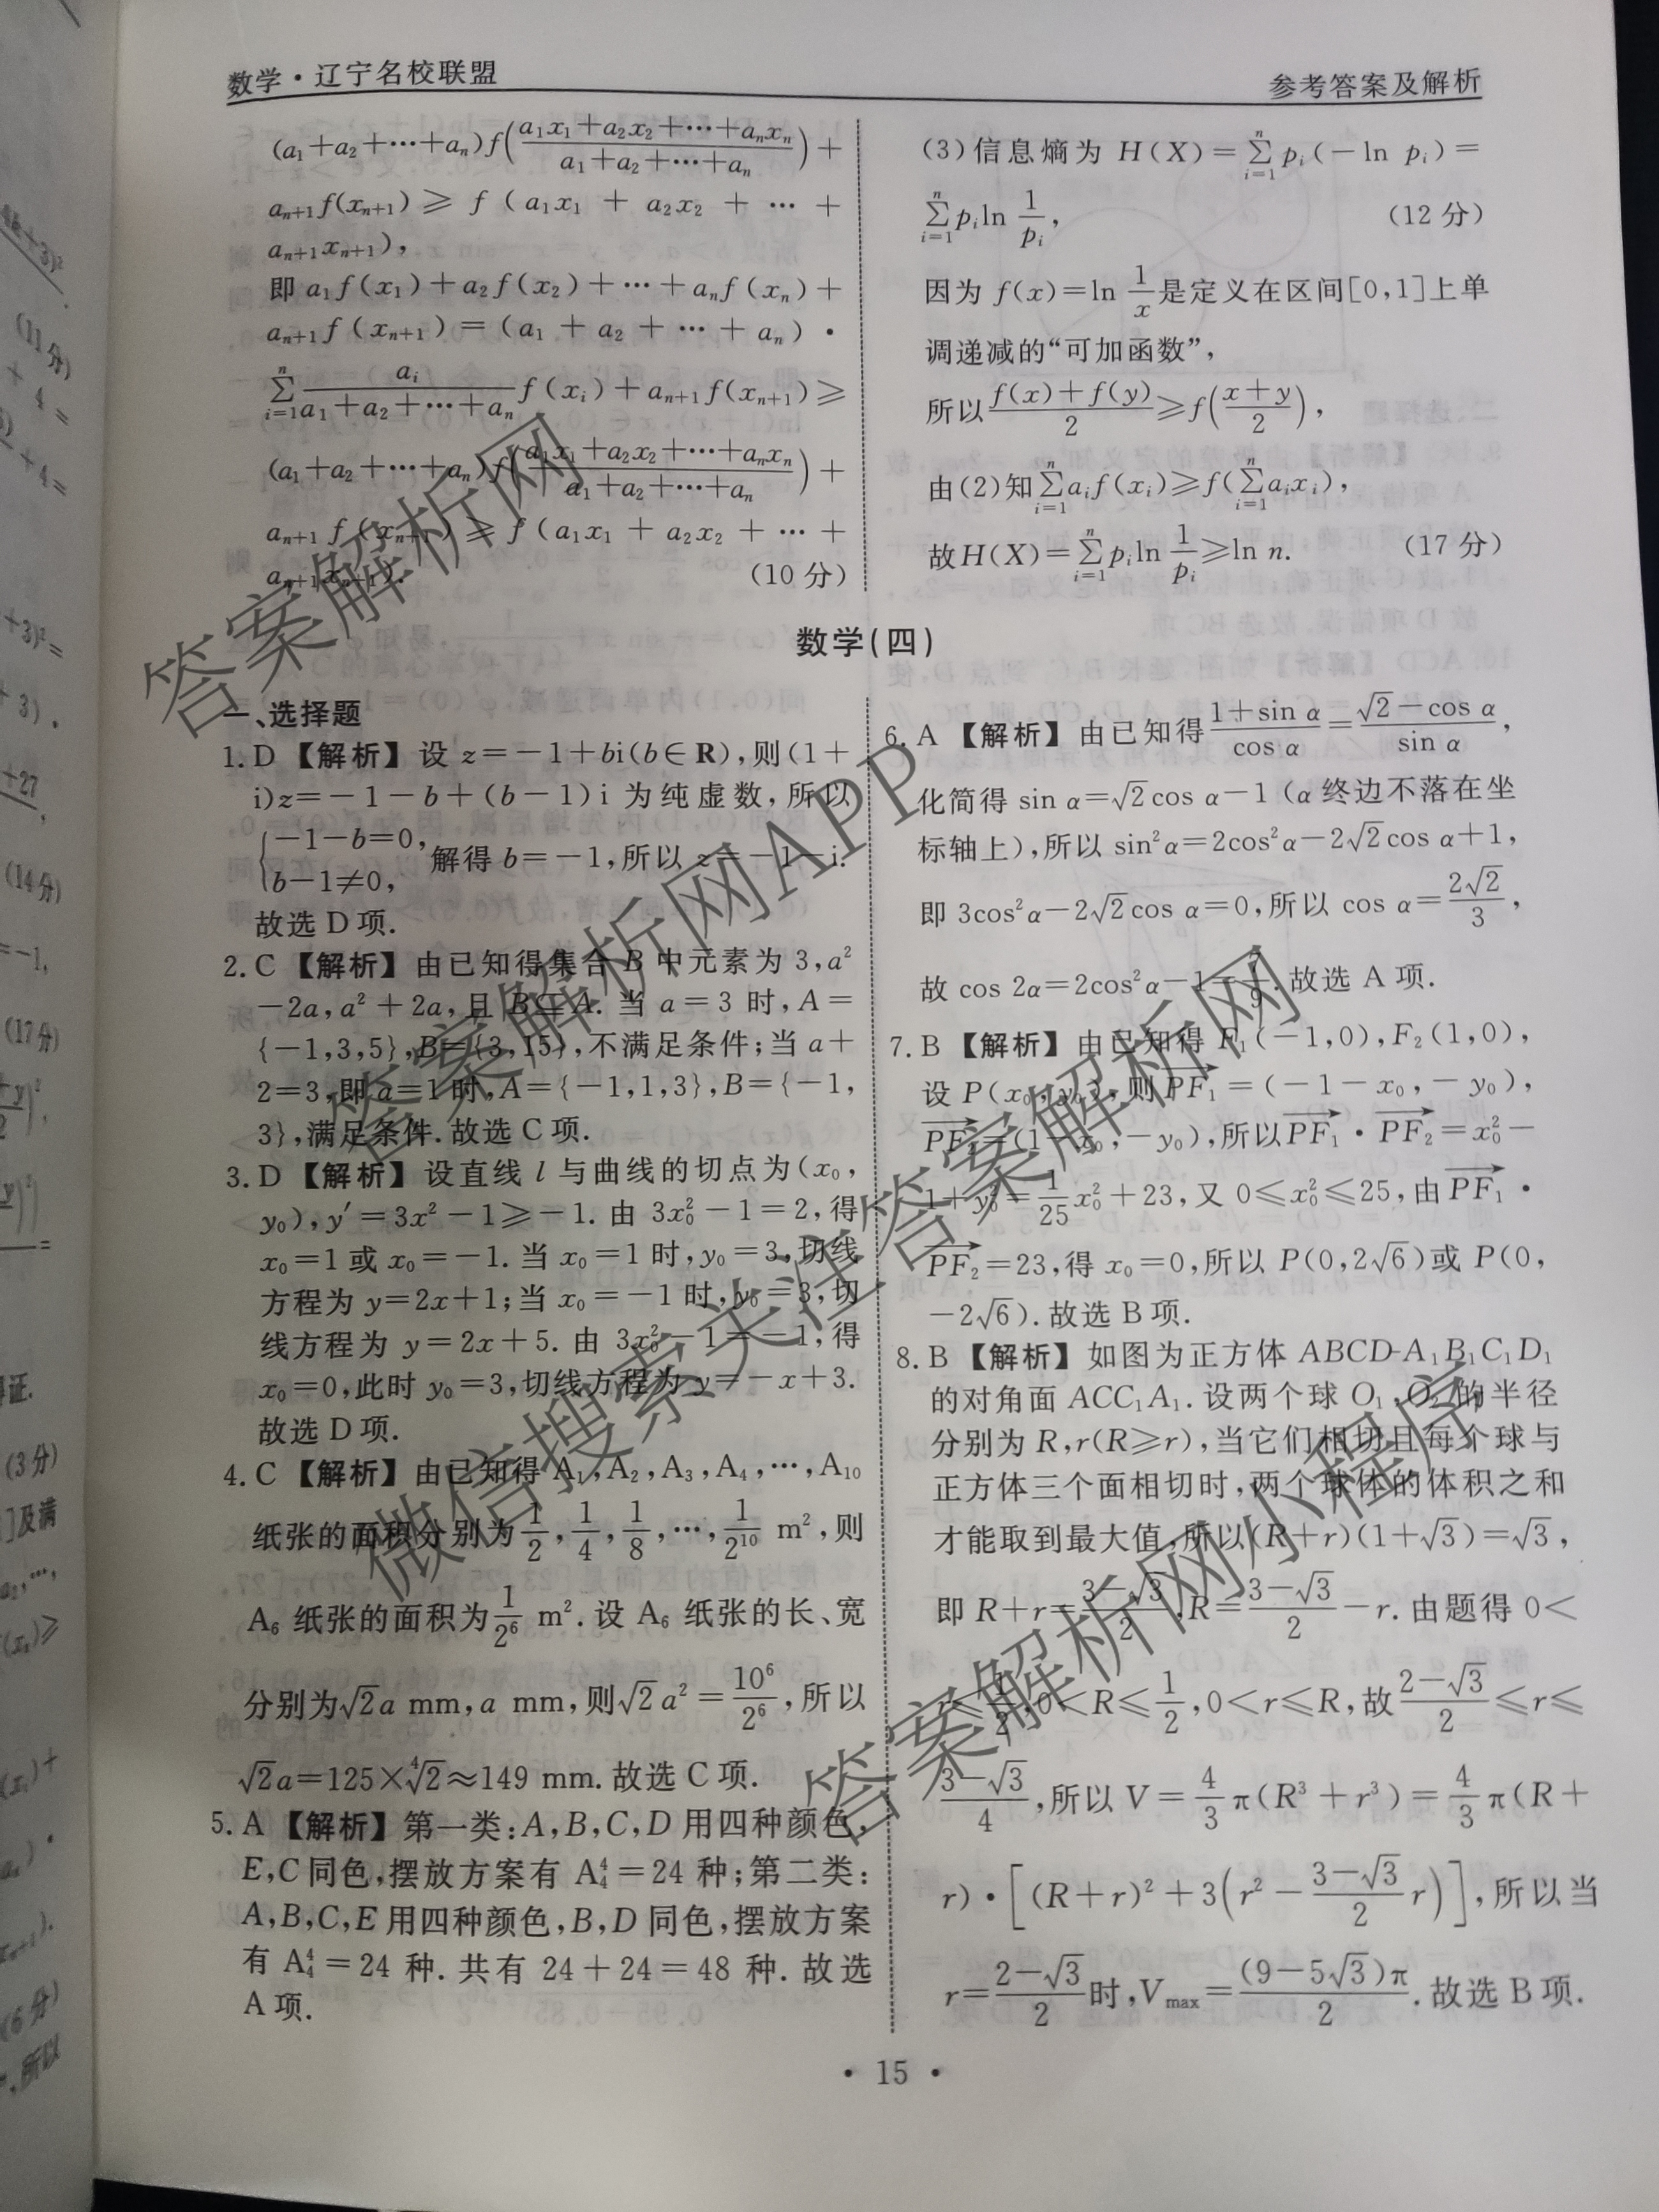 数学·辽宁名校联盟
参考答案及解析
(a₁+a₂+…+aₙ)f((a₁x₁+a₂x₂+…+aₙxₙ)/(a₁+a₂+…+aₙ))+
aₙ₊₁f(xₙ₊₁)≥f(a₁x₁+a₂x₂+…+
aₙ₊₁xₙ₊₁),
即a₁f(x₁)+a₂f(x₂)+…+aₙf(xₙ)+
aₙ₊₁f(xₙ₊₁)=(a₁+a₂+…+aₙ)·
∑ⁿᵢ₌₁ aᵢ/(a₁+a₂+…+aₙ) f(xᵢ)+aₙ₊₁f(xₙ₊₁)≥
(a₁+a₂+…+aₙ)f((a₁x₁+a₂x₂+…+aₙxₙ)/(a₁+a₂+…+aₙ))+
aₙ₊₁f(xₙ₊₁)≥f(a₁x₁+a₂x₂+…+
aₙ₊₁xₙ₊₁). (10分)
(3)信息熵为H(X)=∑ⁿᵢ₌₁pᵢ(-ln pᵢ)=
∑ⁿᵢ₌₁pᵢln 1/pᵢ, (12分)
因为f(x)=ln 1/x是定义在区间[0,1]上单
调递减的“可加函数”,
所以(f(x)+f(y))/2≥f((x+y)/2),
由(2)知∑ⁿᵢ₌₁aᵢf(xᵢ)≥f(∑ⁿᵢ₌₁aᵢxᵢ),
故H(X)=∑ⁿᵢ₌₁pᵢln 1/pᵢ≥ln n. (17分)
数学(四)
一、选择题
1. D 【解析】设z=-1+bi(b∈R),则(1+
i)z=-1-b+(b-1)i为纯虚数,所以
{-1-b=0, b-1≠0, 解得b=-1,所以z=-1-i.
故选D项.
2. C 【解析】由已知得集合B中元素为3,a²
-2a,a²+2a,且B⊆A.当a=3时,A=
{-1,3,5},B={3,15},不满足条件;当a+
2=3,即a=1时,A={-1,1,3},B={-1,
3},满足条件.故选C项.
3. D 【解析】设直线l与曲线的切点为(x₀,
y₀),y′=3x²-1≥-1.由3x₀²-1=2,得
x₀=1或x₀=-1.当x₀=1时,y₀=3,切线
方程为y=2x+1;当x₀=-1时,y₀=3,切
线方程为y=2x+5.由3x₀²-1=-1,得
x₀=0,此时y₀=3,切线方程为y=-x+3.
故选D项.
4. C 【解析】由已知得A₁,A₂,A₃,A₄,…,A₁₀
纸张的面积分别为1/2,1/4,1/8,…,1/2¹⁰ m²,则
A₆纸张的面积为1/2⁶ m².设A₆纸张的长、宽
分别为√2a mm,a mm,则√2a²=10⁶/2⁶,所以
√2a=125×⁴√2≈149 mm.故选C项.
5. A 【解析】第一类:A,B,C,D用四种颜色,
E,C同色,摆放方案有A₄⁴=24种;第二类:
A,B,C,E用四种颜色,B,D同色,摆放方案
有A₄⁴=24种.共有24+24=48种.故选
A项.
6. A 【解析】由已知得(1+sin α)/cos α=(√2-cos α)/sin α,
化简得sin α=√2cos α-1(α终边不落在坐
标轴上),所以sin²α=2cos²α-2√2cos α+1,
即3cos²α-2√2cos α=0,所以cos α=2√2/3,
故cos 2α=2cos²α-1=7/9.故选A项.
7. B 【解析】由已知得F₁(-1,0),F₂(1,0),
设P(x₀,y₀),则PF₁→=(-1-x₀,-y₀),
PF₂→=(1-x₀,-y₀),所以PF₁→·PF₂→=x₀²-
1+y₀²=1/25x₀²+23,又0≤x₀²≤25,由PF₁→·
PF₂→=23,得x₀=0,所以P(0,2√6)或P(0,
-2√6).故选B项.
8. B 【解析】如图为正方体ABCD-A₁B₁C₁D₁
的对角面ACC₁A₁.设两个球O₁,O₂的半径
分别为R,r(R≥r),当它们相切且每个球与
正方体三个面相切时,两个球体的体积之和
才能取到最大值,所以(R+r)(1+√3)=√3,
即R+r=(3-√3)/2,R=(3-√3)/2-r.由题得0<
r≤1/2,0<R≤1/2,0<r≤R,故(2-√3)/2≤r≤
(3-√3)/4,所以V=4/3π(R³+r³)=4/3π(R+
r)·[(R+r)²+3(r²-(3-√3)/2 r)],所以当
r=(2-√3)/2时,Vmax=(9-5√3)π/2.故选B项.
·15·
答案解析网
答案解析网APP
微信搜索关注答案解析网
答案解析网小程序